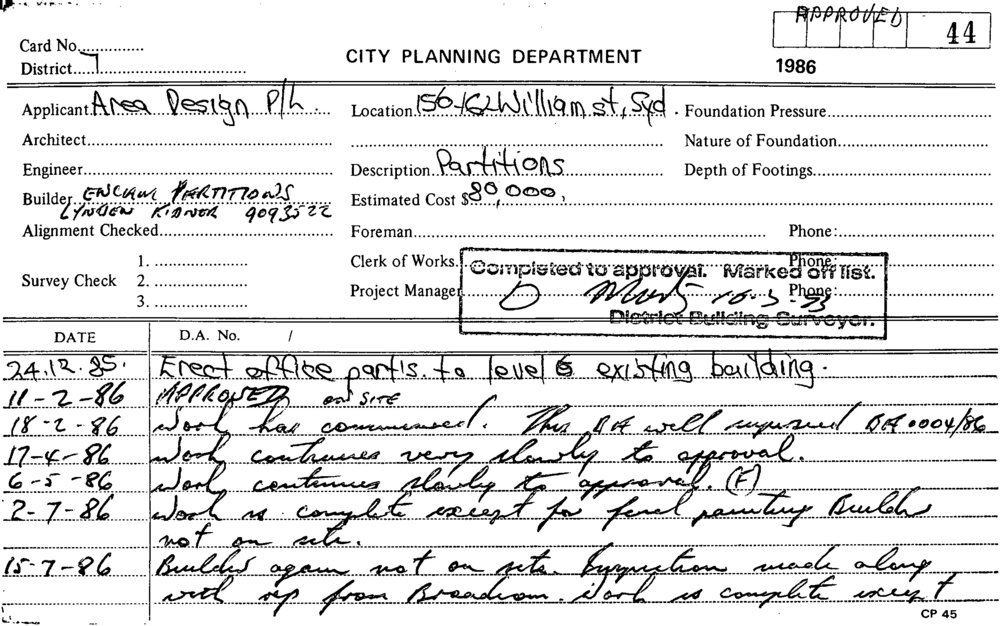 APPROVED
44
Card No.
District 7
CITY PLANNING DEPARTMENT
1986
Applicant Area Design P/L. Location 156-162 William st, Syd. Foundation Pressure
Architect Nature of Foundation
Engineer Description Partitions Depth of Footings
Builder PARTITIONS Estimated Cost $80,000,
9093522
Alignment Checked Foreman Phone:
Survey Check 1. Clerk of Works Phone:
2. Project Manager Phone:
3.
Completed to approval. Marked off list.
16-3-93
District Building Surveyor.
DATE D.A. No. /
24.12.85. Erect office part's. to level 6 existing building.
11-2-86 APPROVED on SITE
18-2-86 Work has commenced. This BA will BA 0004/86
17-4-86 Work continues very slowly to approval.
6-5-86 Work continues slowly to approval. (F)
2-7-86 Work is complete except for final painting Builder
not on site.
15-7-86 Builder again not on site. Inspection made along
with rep from Broadcom. Work is complete except
CP 45